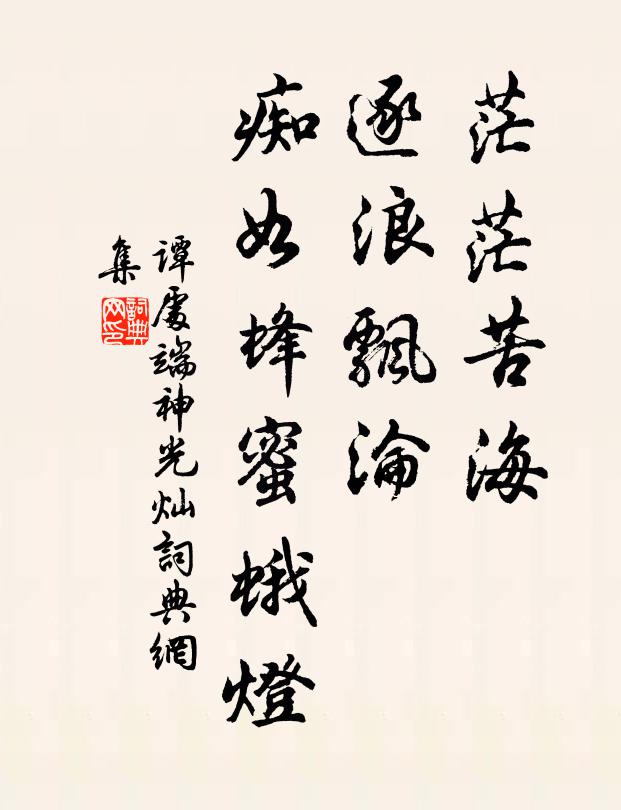 茫茫苦海
逐浪飄淪
痴如蜂蜜蛾燈
譚處端神光灿詞典網
集
詞典
网印